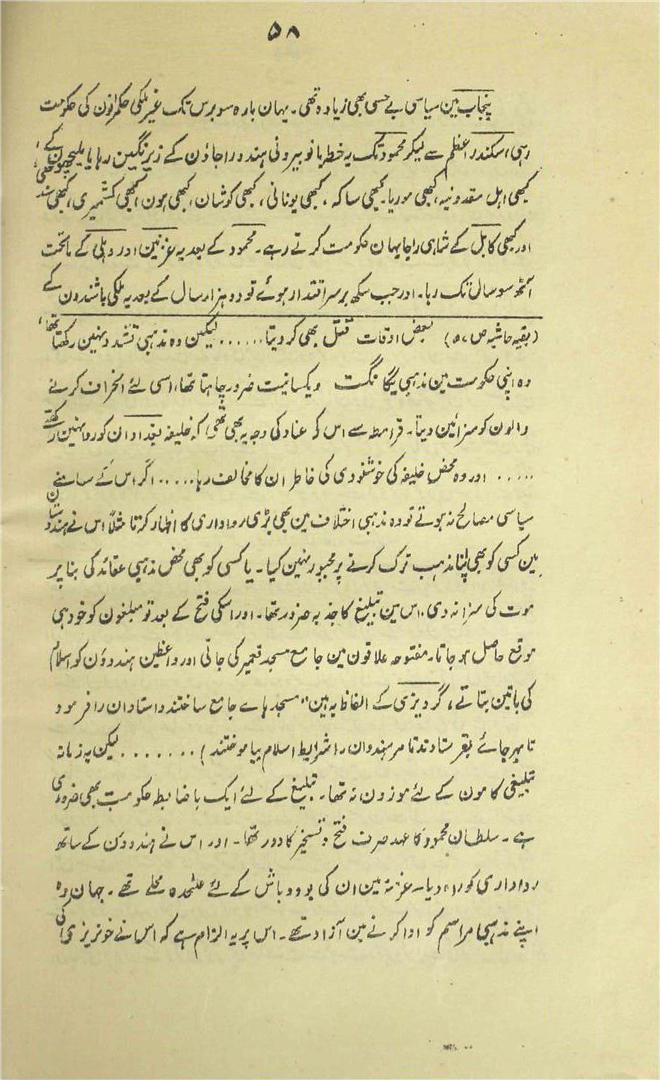 ۵۸
پنجاب مین سیاسی بے حسی بھی زیادہ تھی۔ یہان بارہ سو برس تک غیر ملکی حکمرانون کی حکومت
رہی، سکندر اعظم سے لیکر محمود تک یہ خطہ یا تو بیرونی ہندو راجاؤن کے زیر نگین رہا یا ملیچھون کے،
کبھی اہل مقدونیہ، کبھی موریا۔ کبھی ساکہ، کبھی یونانی، کبھی کوشان، کبھی ہون، کبھی کشمیری، کبھی
اور کبھی کابل کے شاہی راجا یہان حکومت کرتے رہے۔ محمود کے بعد یہ غزنین اور دہلی کے ماتحت
آٹھ سو سال تک رہا۔ اور جب سکھ برسر اقتدار ہوئے تو دو ہزار سال کے بعد یہ ملکی باشندون کے
(بقیہ حاشیہ ص ۵۷) بعض اوقات قتل بھی کر دیتا ...... لیکن وہ مذہبی تشدد نہین رکھتا تھا،
وہ اپنی حکومت مین مذہبی یگانگت و یکسانیت ضرور چاہتا تھا، اسی لئے انحراف کرنے
والون کو سزائین دیتا۔ قرامطہ سے اس کے عناد کی وجہ یہ بھی تھی کہ خلیفہ بغداد ان کو روا نہین رکھتے
..... اور وہ محض خلیفہ کی خوشنودی کی خاطر ان کا مخالف رہا ..... اگر اس کے سامنے
سیاسی مصالح نہ ہوتے تو وہ مذہبی اختلاف مین بھی بڑی رواداری کا اظہار کرتا مثلاً اس نے ہندوستان
مین کسی کو بھی اپنا مذہب ترک کرنے پر مجبور نہین کیا۔ یا کسی کو بھی محض مذہبی عقائد کی بنا پر
موت کی سزا نہ دی، اس مین تبلیغ کا جذبہ ضرور تھا۔ اور اسکی فتح کے بعد تو مبلغون کو خود ہی
موقع حاصل ہو جاتا۔ مفتوحہ علاقون مین جامع مسجد تعمیر کی جاتی اور واعظین ہندوؤن کو اسلام
کی باتین بتاتے، گردیزی کے الفاظ یہ ہین "مسجد ہاے جامع ساختند و استادان را فرمود
تا بہر جائے بفرستادند تا مر ہندوان را شرایط اسلام بیاموختند) ....... لیکن یہ زمانہ
تبلیغی کامون کے لئے موزون نہ تھا۔ تبلیغ کے لئے ایک باضابطہ حکومت بھی ضروری
ہے۔ سلطان محمود کا عہد صرف فتح و تسخیر کا دور تھا۔ اور اس نے ہندوؤن کے ساتھ
رواداری کو راہ دیا۔ غزنہ مین ان کی بود و باش کے لئے علٰحدہ محلے تھے۔ جہان وہ
اپنے مذہبی مراسم کو ادا کرنے مین آزاد تھے۔ اس پر یہ الزام ہے کہ اس نے خونریزی کی